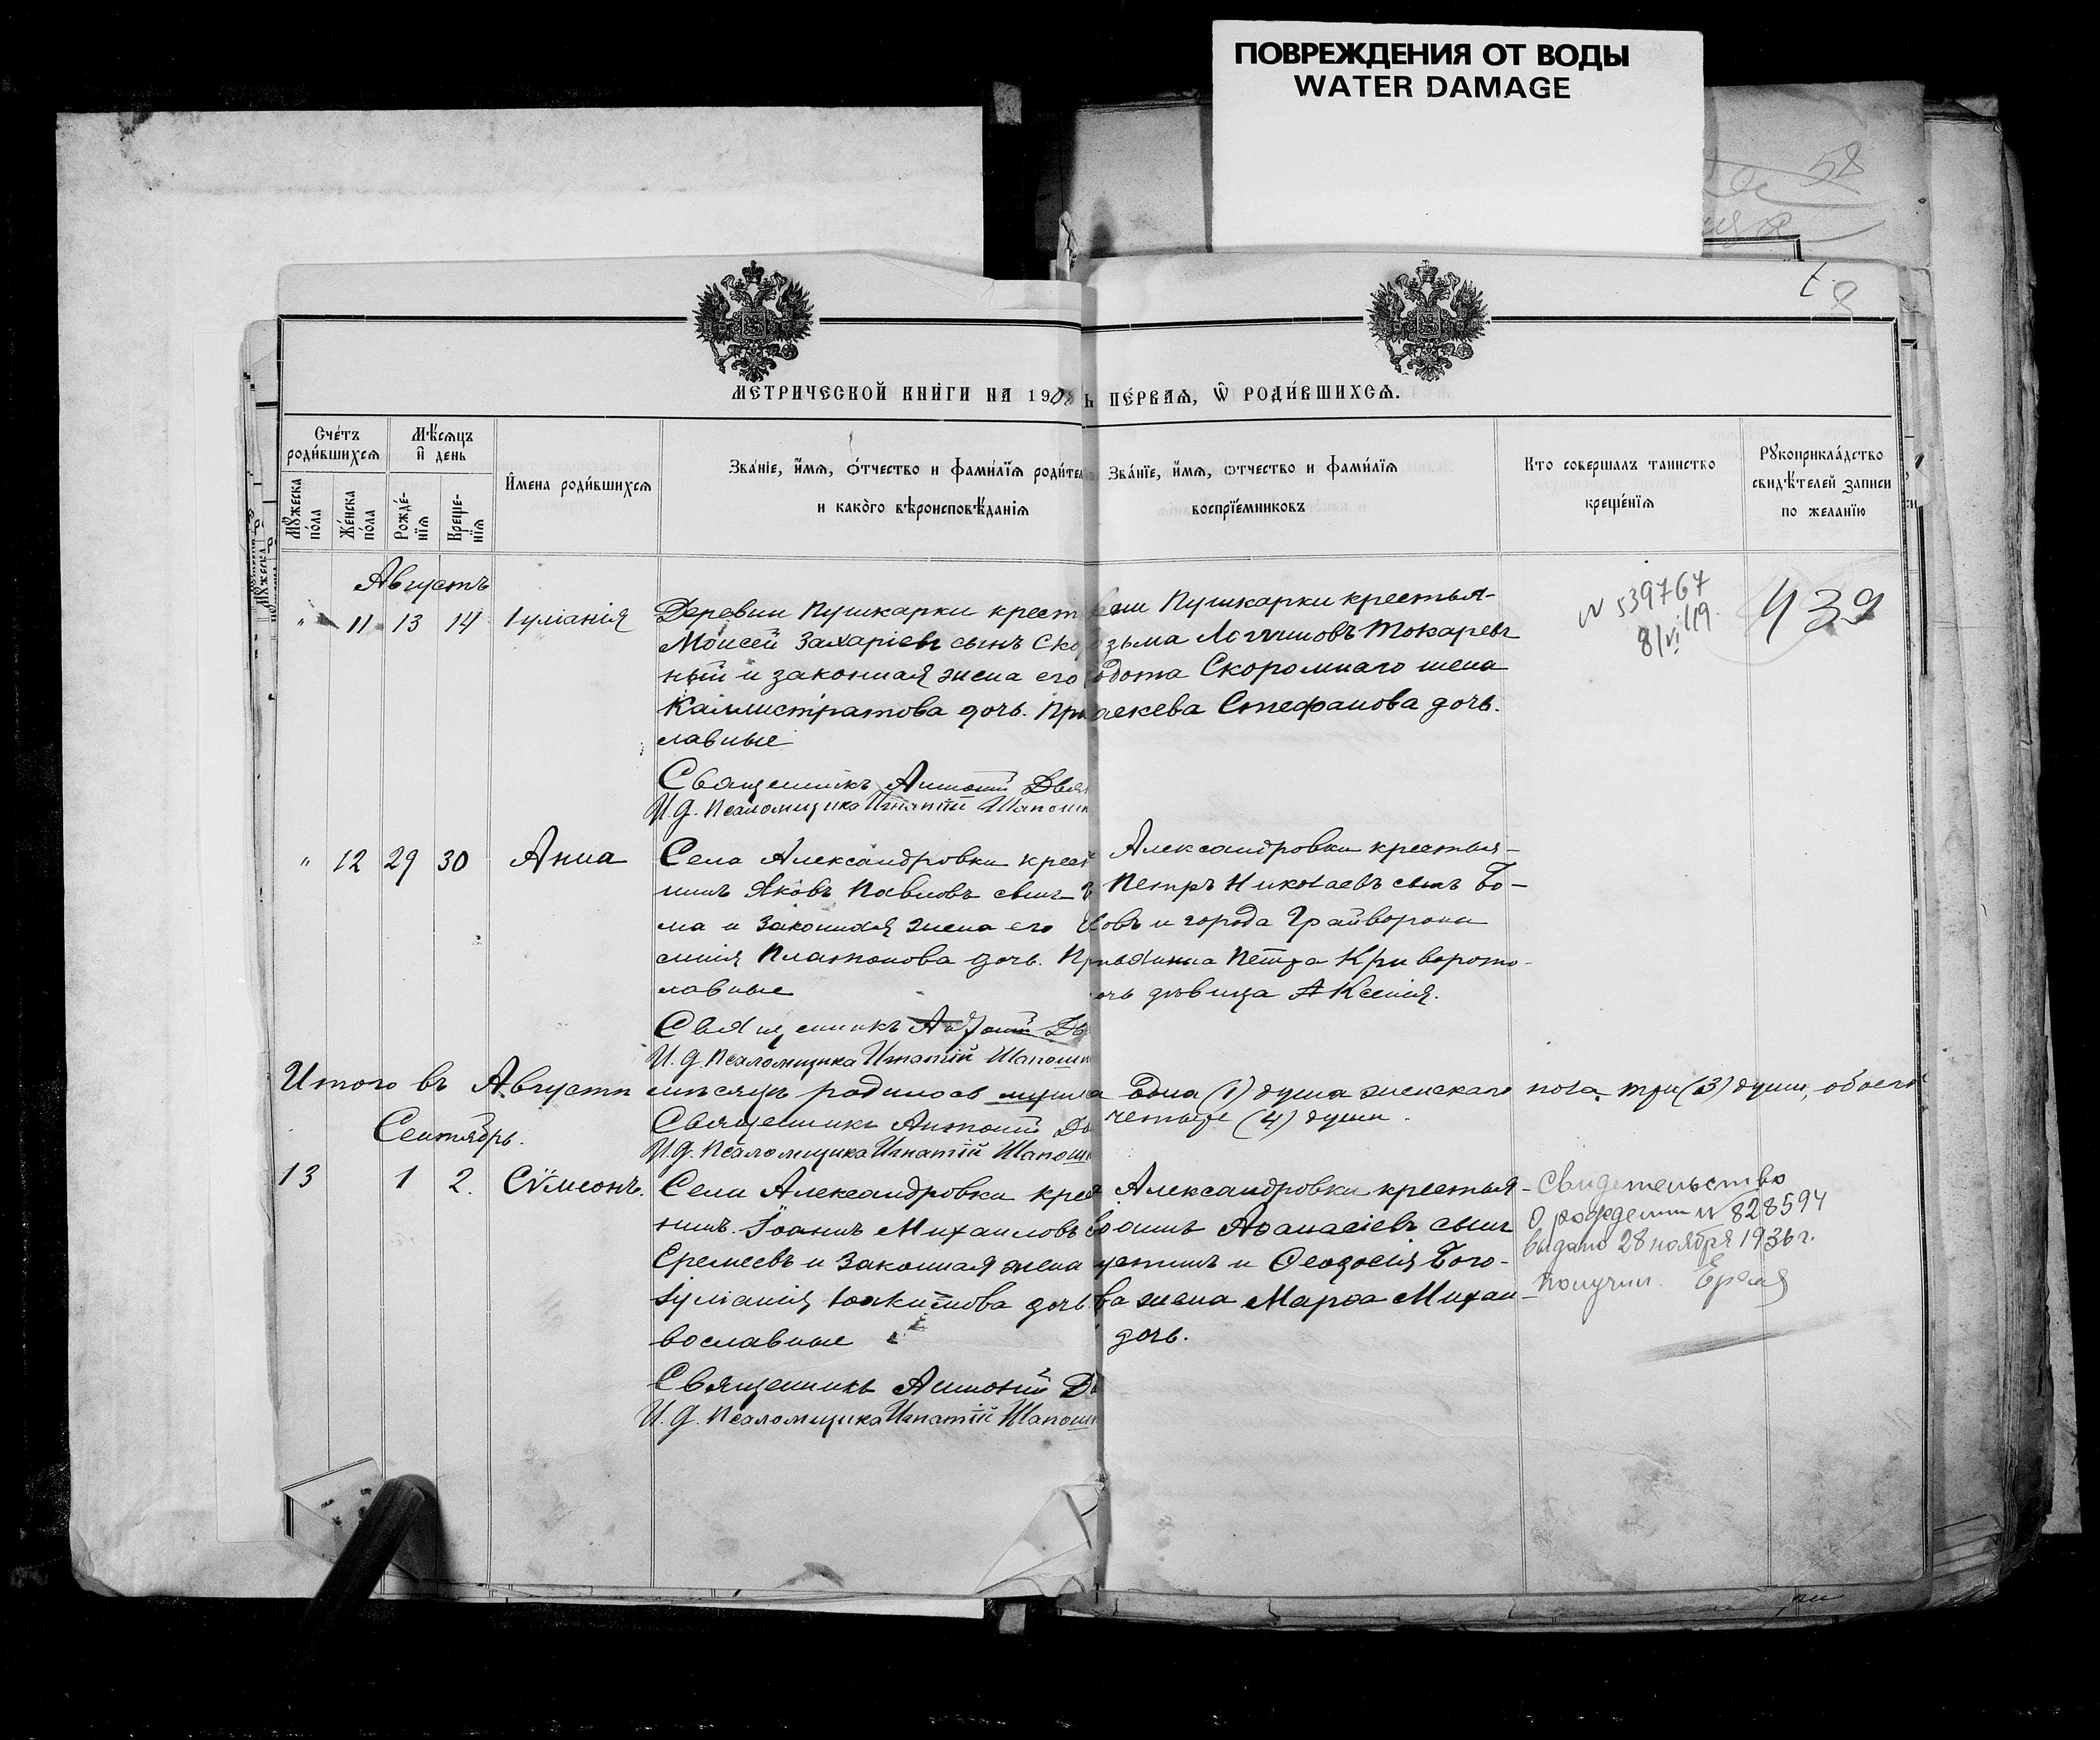 ПОВРЕЖДЕНИЯ ОТ ВОДЫ
WATER DAMAGE
58
МЕТРИЧЕСКОЙ КНИГИ НА 1908
ПЕРВАЯ, Ѿ РОДИВШИХСЯ.
Счетъ родившихся
Мѣсяцъ и день
Имена родившихся
Званіе, имя, отчество и фамилія родител
и какого вѣроисповѣданія
Званіе, имя, отчество и фамилія
воспріемниковъ
Кто совершалъ таинство
крещенія
Рукоприкладство
свидѣтелей записи
по желанію
Мужеска пола
Женска пола
Рожденія
Крещенія
Августъ
" 11 13 14 Іуліанія
Деревни Пушкарки крест
Моисей Захаріевъ сынъ Скор
ный и законная жена его
Каллистратова дочь. Пра
лавные
Священникъ Антоній Двя
И. д. Псаломщика Игнатій Шапошн
вни Пушкарки крестья-
озьма Логгиновъ Токаревъ
одота Скоромнаго жена
аскева Стефанова дочь.
N 539767
8/VI 19
439
" 12 29 30 Анна
Села Александровки крест
нинъ Яковъ Павловъ сынъ
ма и законная жена его
Платонова дочь. Пр
лавные
Священникъ Антоній Дв
И. д. Псаломщика Игнатій Шапошн
Александровки крестья-
Петръ Николаевъ сынъ Бо-
овъ и города Грайворона
Петра Криворото-
очь дѣвица Аксенія.
Итого въ Августѣ мѣсяцѣ родилось мужска одна (1) душа женскаго пола три (3) души, обоего
четыре (4) души.
Священникъ Антоній Дв
И. д. Псаломщика Игнатій Шапошн
Сентябрь.
13 1 2. Сѵмеонъ.
Села Александровки крес
нинъ Іоаннъ Михаиловъ
Еремеевъ и законная жена
Іуліанія Іоакимова дочь.
вославные
Священникъ Антоній Дв
И. д. Псаломщика Игнатій Шапошн
Александровки крестья-
оаннъ Аѳанасіевъ сынъ
устинъ и Ѳеодосія Бого-
ва жена Марѳа Михаи-
дочь.
Свидетельство
о рождении N 828594
выдано 28 ноября 1936 г.
Получил. Ерем